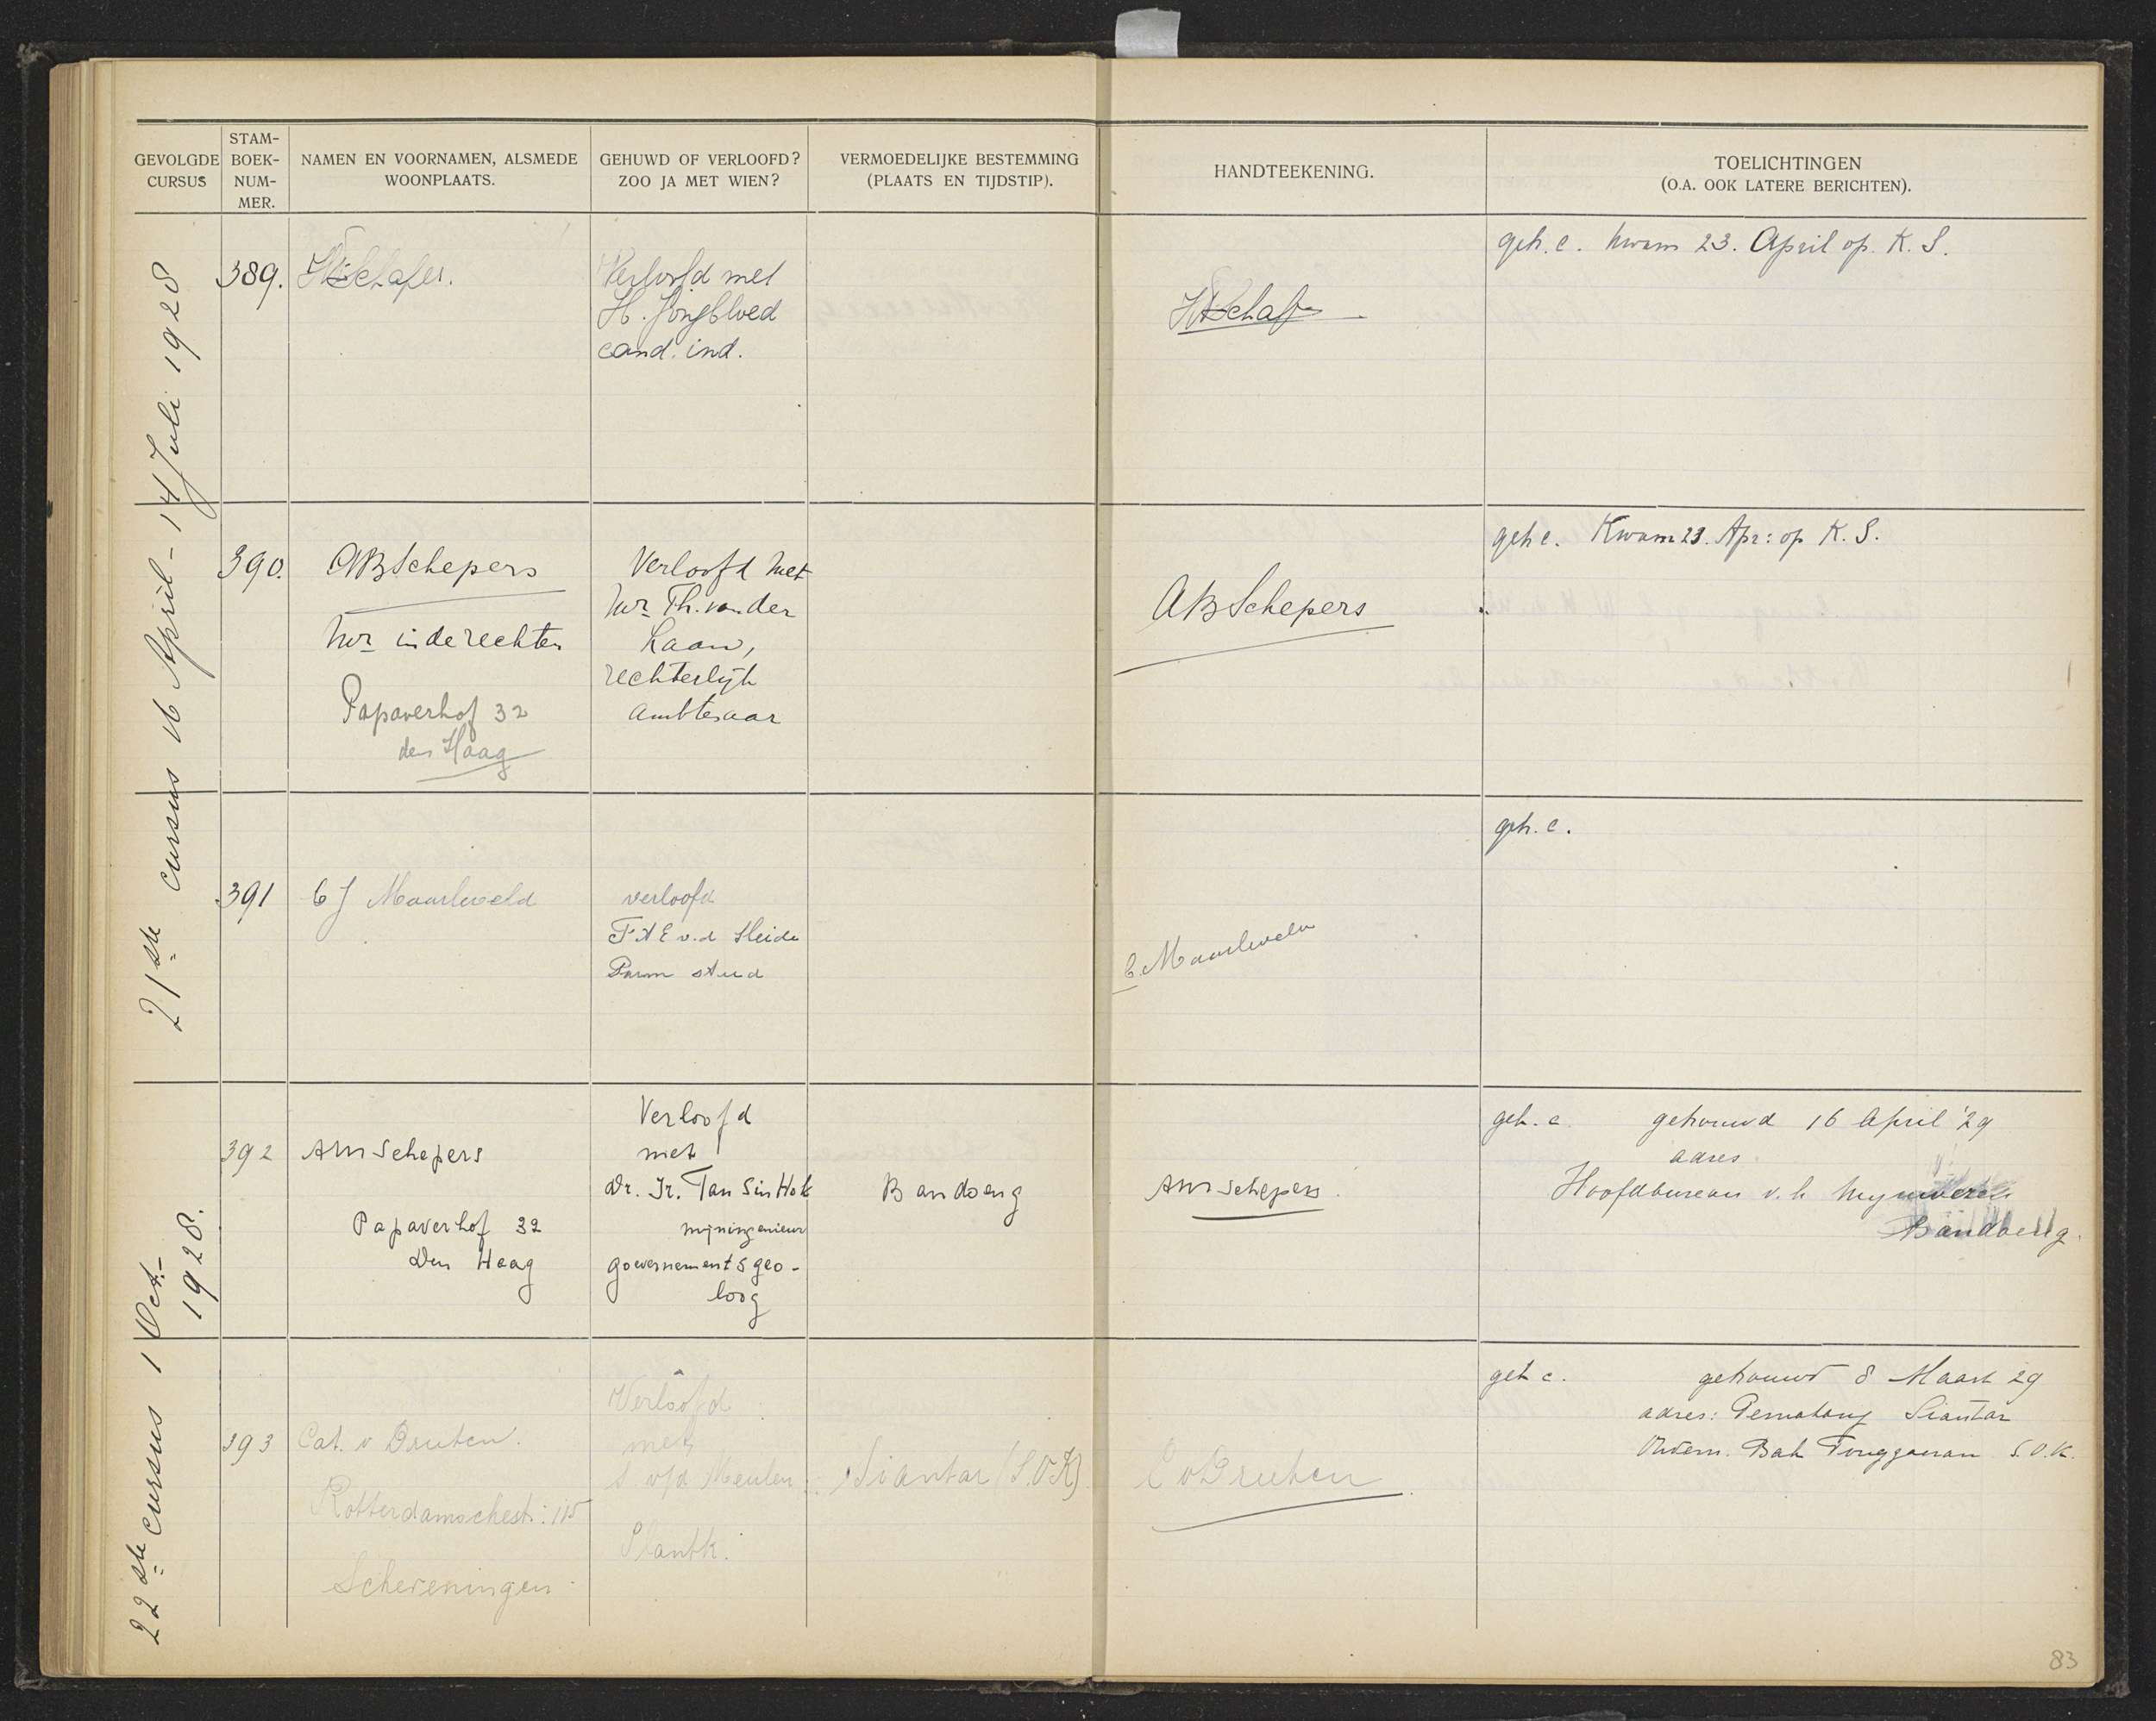 GEVOLGDE CURSUS
STAM-BOEK-NUM-MER.
NAMEN EN VOORNAMEN, ALSMEDE WOONPLAATS.
GEHUWD OF VERLOOFD? ZOO JA MET WIEN?
VERMOEDELIJKE BESTEMMING (PLAATS EN TIJDSTIP).
HANDTEEKENING.
TOELICHTINGEN (O.A. OOK LATERE BERICHTEN).
21ste cursus 16 April - 14 Juli 1928
389.
Schafer.
Verloofd met
H. Jongbloed
cand. ind.
geh. c. kwam 23. April op. K. S.
390.
AB Schepers
Mr in de rechten
Papaverhof 32
den Haag
Verloofd met
Mr Th. van der
Laan,
rechterlijk
ambtenaar
AB Schepers
geh c. Kwam 23. Apr: op K. S.
391
C J Maarleveld
verloofd
F A E v.d Heide
stud
C. Maarleveld
geh. c.
22ste cursus 1 Oct.-
1928.
392
AM Schepers
Papaverhof 32
Den Haag
Verloofd
met
Dr. Ir. Tan Sin Hok
mijningenieur
gouvernements geo-
loog
Bandoeng
AM Schepers.
geh. c. getrouwd 16 April '29
adres
Hoofdbureau v. h. Mijnwezen
Bandoeng.
393
Cat. v Druten.
Rotterdamschestr: 115
Scheveningen
Verloofd
met
S. v/d Meulen
Plantk.
Siantar (S.O.K)
C v Druten
geh c. getrouwd 8 Maart 29
adres: Pematang Siantar
Ondern. Bah S.O.K.
83